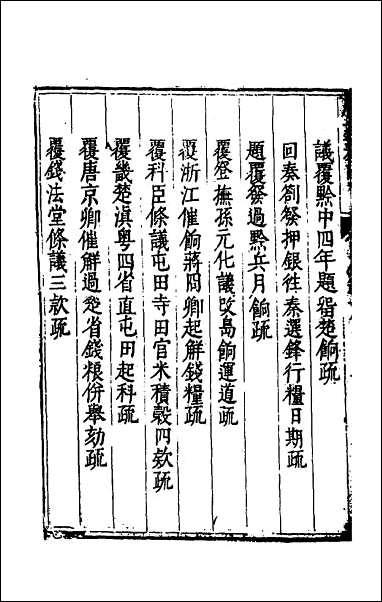 議覆黔中四年題畱楚餉疏
回奏劄發押銀徃秦選鋒行糧日期疏
題覆發過黔兵月餉疏
覆登撫孫元化議改島餉運道疏
覆浙江催餉蔣冏卿起解錢糧疏
覆科臣條議屯田寺田官米積穀四欵疏
覆畿楚滇粤四省直屯田起科疏
覆唐京卿催解過楚省錢粮併舉劾疏
覆錢法堂條議三欵疏